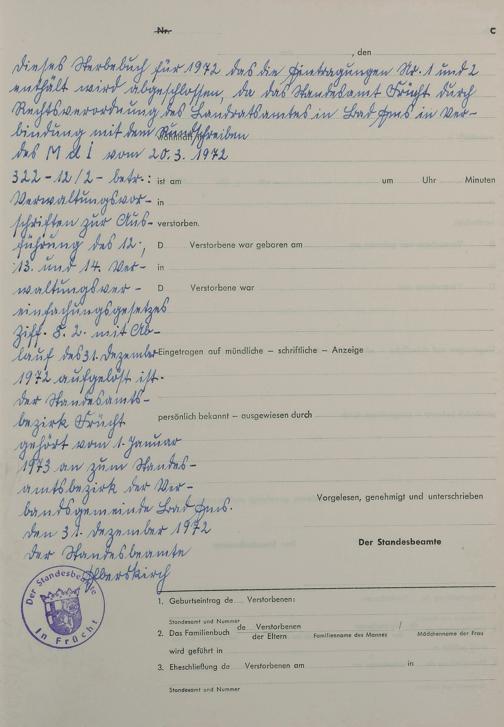 Nr.
C
, den
Dieses Sterbebuch für 1972 das die Eintragungen Nr. 1 und 2
enthält wird abgeschlossen, da das Standesamt Frücht durch
Rechtsverordnung des Landratsamtes in Bad Ems in Ver-
bindung mit dem Rundschreiben
des M d I vom 20.3.1972
322-12/2- betr.: ist am um Uhr Minuten
Verwaltungsvor- in
schriften zur Aus- verstorben.
führung des 12., D Verstorbene war geboren am
13. und 14. Ver- in
waltungsver- D Verstorbene war
einfachungsgesetzes
Ziff. 8.2. mit Ab-
lauf des 31. Dezember Eingetragen auf mündliche – schriftliche – Anzeige
1972 aufgelöst ist.
Der Standesamts-
bezirk Frücht persönlich bekannt – ausgewiesen durch
gehört vom 1. Januar
1973 an zum Standes-
amtsbezirk der Ver-
bandsgemeinde Bad Ems. Vorgelesen, genehmigt und unterschrieben
Den 31. Dezember 1972
Der Standesbeamte
Der Standesbeamte
Der Standesbeamte
in Frücht
1. Geburtseintrag de Verstorbenen:
Standesamt und Nummer
2. Das Familienbuch de Verstorbenen /
der Eltern Familienname des Mannes Mädchenname der Frau
wird geführt in
3. Eheschließung de Verstorbenen am in
Standesamt und Nummer